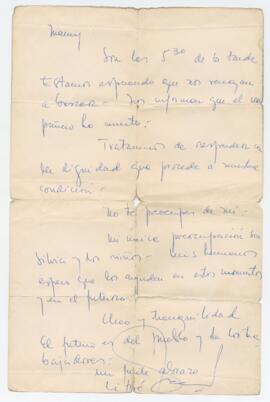 Son las 5³⁰ de la tarde
Estamos esperando que nos vengan
a buscar - Nos informan que el com
pañero ha muerto.-
Tratamos de responder con
la dignidad que procede a nuestra
condición.-
No te preocupes de mi.-
Mi unica preocupación son
Silvia y los niños - mis hermanos
espero que los ayuden en estos momentos
y en el futuro.-
y tranquilidad
El futuro es del Pueblo y de los tra
bajadores.-
un fuerte abrazo!